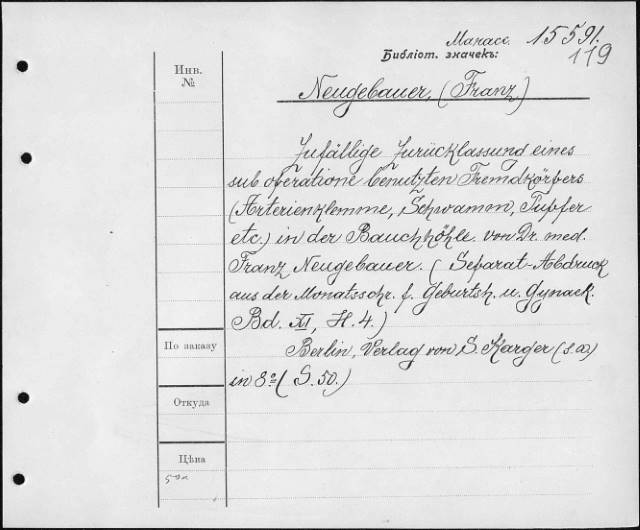 Манасс. 15591.
Библіот. значекъ:
119
Инв.
№
Neugebauer, (Franz)
Zufällige Zurücklassung eines
sub operatione benutzten Fremdkörpers
(Arterienklemme, Schwamm, Tupfer
etc.) in der Bauchhöhle. von Dr. med.
Franz Neugebauer. ( Separat-Abdruck
aus der Monatsschr. f. Geburtsh. u. Gynaek.
Bd. XI, H. 4.)
По заказу
Berlin, Verlag von S. Karger (s. a)
in 8º ( S. 50.)
Откуда
Цѣна